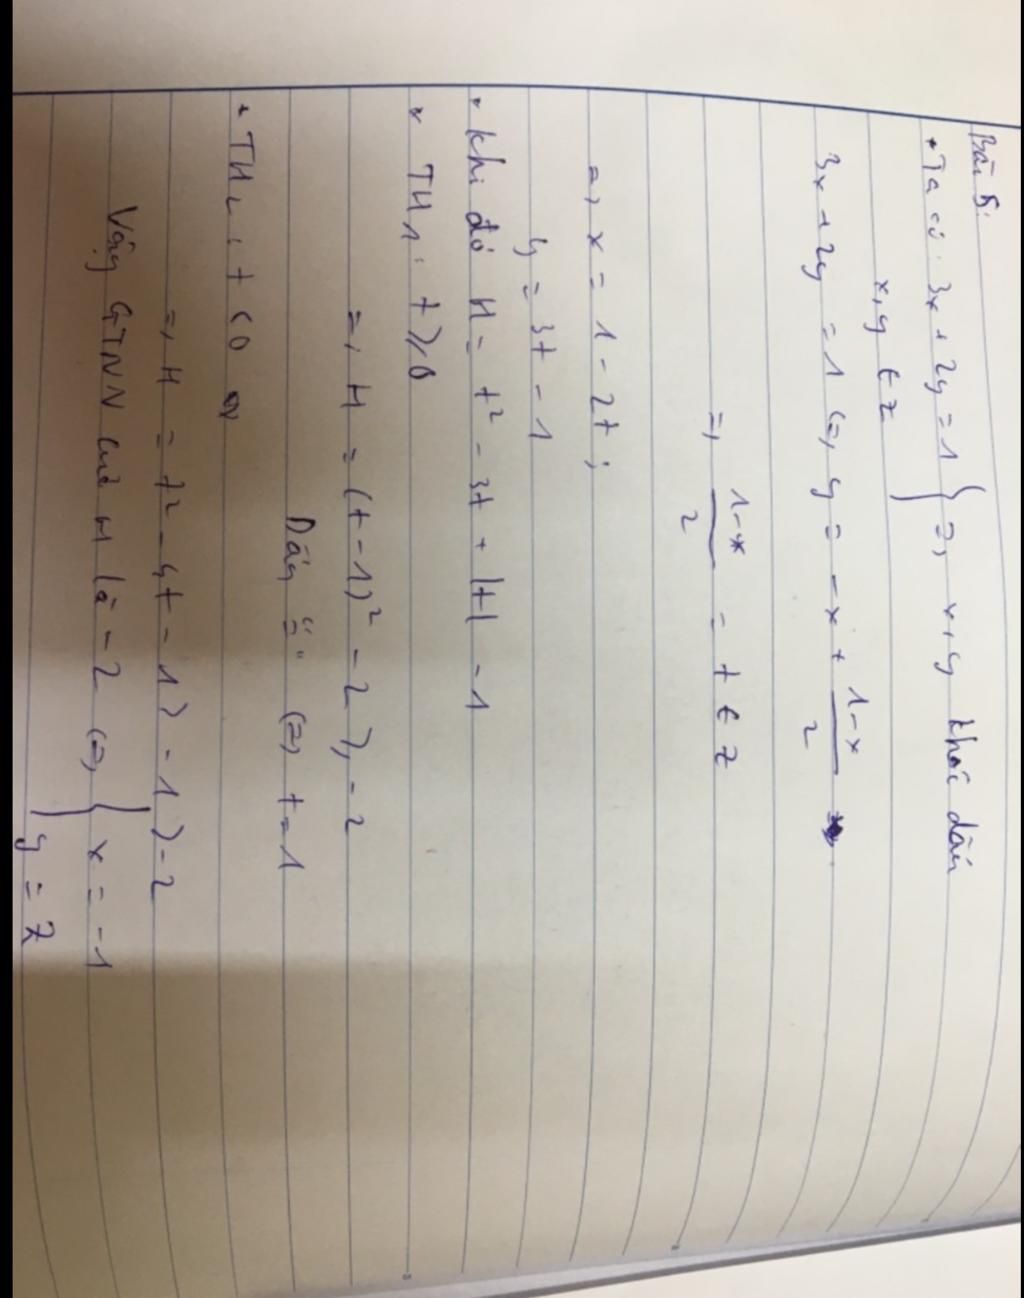 Bài 5:
* Ta có: 3x + 2y = 1 } => x, y khác dấu
x, y ∈ Z
3x + 2y = 1 <=> y = -x + 1-x/2
=> 1-x/2 = t ∈ Z
=> x = 1 - 2t ;
y = 3t - 1
* Khi đó H = t² - 3t + |t| - 1
* TH1: t ≥ 0
=> H = (t - 1)² - 2 ≥ -2
Dấu "=" <=> t = 1
* TH2: t < 0
=> H = t² - 4t - 1 > -1 > -2
Vậy GTNN của H là -2 <=> { x = -1
y = 2